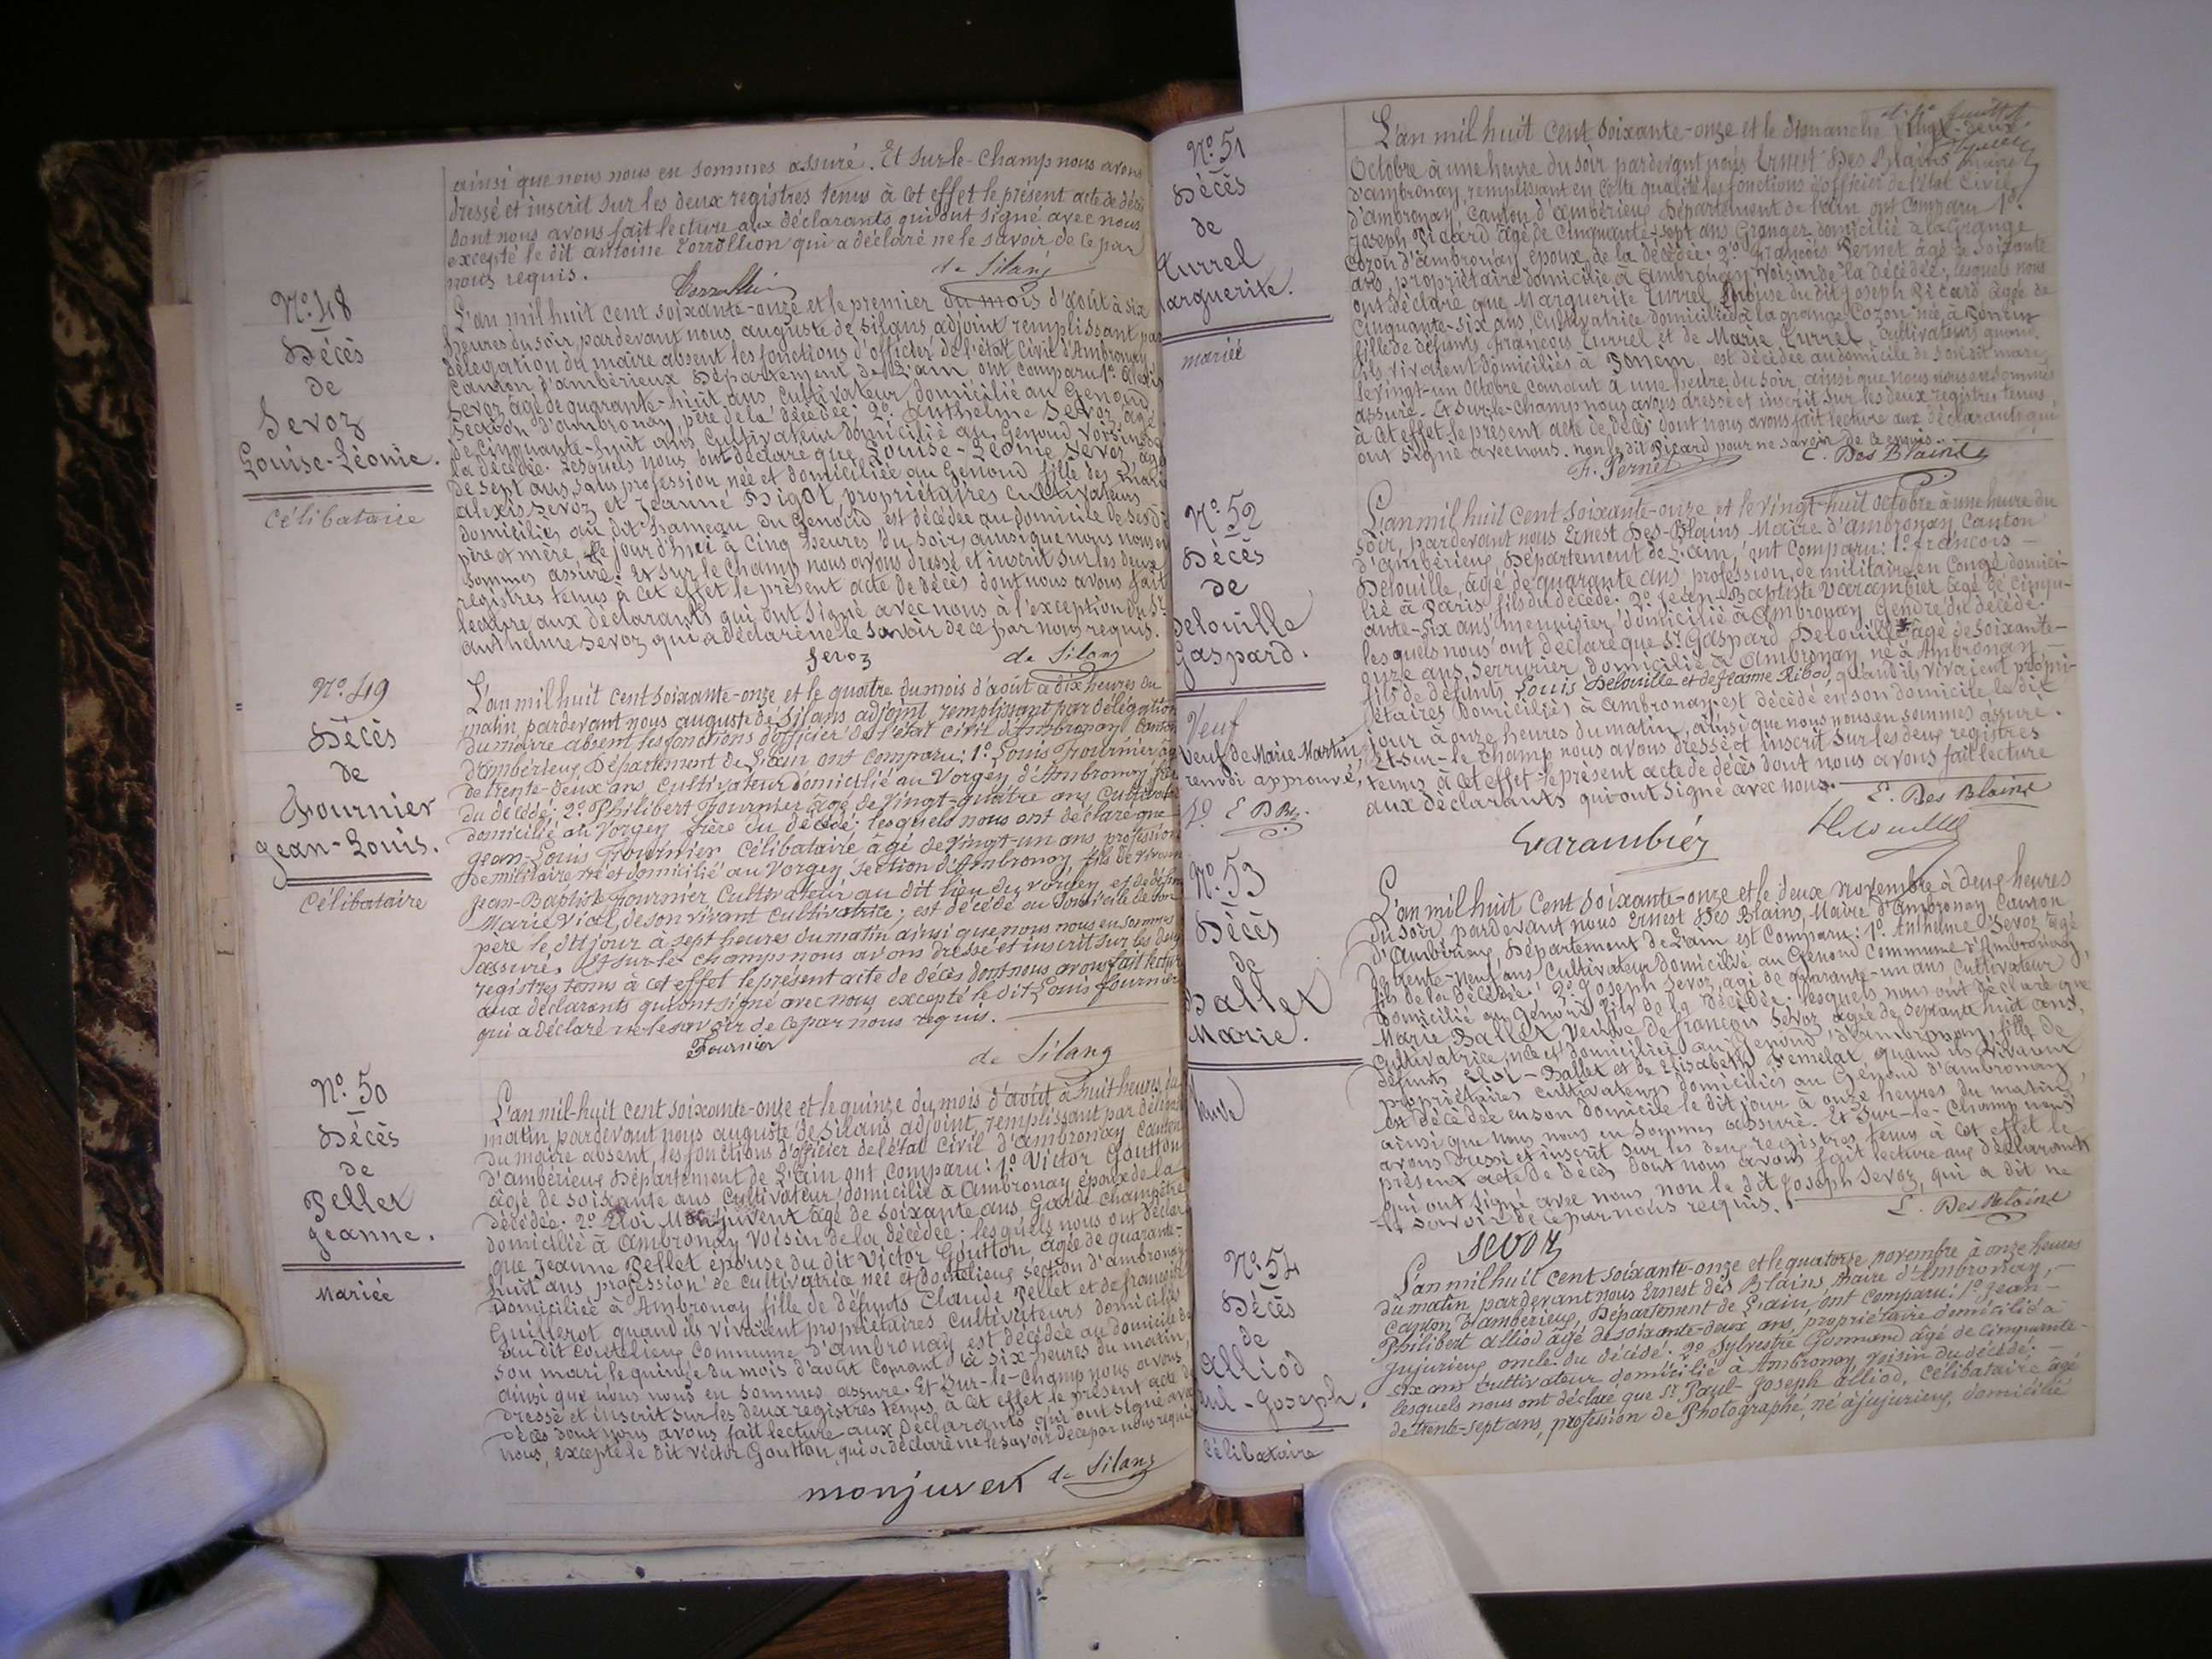 ainsi que nous nous en sommes assuré. Et sur-le-champ nous avons
dressé et inscrit sur les deux registres tenus à cet effet le présent acte de décès
dont nous avons fait lecture aux déclarants qui ont signé avec nous
excepté le dit antoine qui a déclaré ne le savoir de ce par
nous requis.
de Silans
N° 48
Décès
de
Sevoz
Louise-Léonie.
célibataire
L'an mil huit cent soixante-onze et le premier du mois d'août à six
heures du soir, pardevant nous auguste de Silans adjoint remplissant par
délégation du maire absent les fonctions d'officier de l'état civil d'Ambronay
canton d'ambérieux Département de L'ain ont comparu 1° alexis
Sevoz âgé de quarante-huit ans cultivateur domicilié au Genoud
section d'ambronay, père de la décédée; 2° Anthelme Sevoz âgé
de cinquante-huit ans cultivateur domicilié au Genoud voisin de
la décédée. Lesquels nous ont déclaré que Louise-Léonie Sevoz âgée
de sept ans, sans profession née et domiciliée au Genoud fille des
alexis Sevoz et Jeanne Bigot, propriétaires cultivateurs
domiciliés au dit hameau du Genoud, est décédée au domicile de ses dits
père et mère, le jour d'hui à cinq heures du soir, ainsi que nous nous en
sommes assuré. Et sur le champ nous avons dressé et inscrit sur les deux
registres tenus à cet effet le présent acte de décès dont nous avons fait
lecture aux déclarants qui ont signé avec nous à l'exception du St
anthelme Sevoz qui a déclaré ne le savoir de ce par nous requis.
Sevoz de Silans
N° 49
Décès
de
Fournier
Jean-Louis.
Célibataire
L'an mil huit cent soixante-onze et le quatre du mois d'août à dix heures du
matin, pardevant nous auguste de Silans adjoint remplissant par délégation
du maire absent les fonctions d'officier de l'état civil d'Ambronay canton
d'ambérieux Département de L'ain ont comparu: 1° Louis Fournier âgé
de trente-deux ans, cultivateur domicilié au Vorgey d'Ambronay frère
du décédé; 2° Philibert Fournier âgé de vingt-quatre ans cultivateur
domicilié au Vorgey frère du décédé; lesquels nous ont déclaré que
Jean-Louis Fournier célibataire âgé de vingt-un ans profession
de militaire né et domicilié au Vorgey section d'Ambronay, fils de vivant
Jean-Baptiste Fournier cultivateur au dit lieu du vorgey, et de défunte
Marie Vial, de son vivant cultivatrice; est décédé au domicile de son
père le dit jour à sept heures du matin ainsi que nous nous en sommes
assuré. Et sur-le-champ nous avons dressé et inscrit sur les deux
registres tenus à cet effet le présent acte de décès dont nous avons fait lecture
aux déclarants qui ont signé avec nous excepté le dit Louis Fournier
qui a déclaré ne le savoir de ce par nous requis.
Fournier
de Silans
N° 50
Décès
de
Pellet
Jeanne.
Mariée
L'an mil-huit cent soixante-onze et le quinze du mois d'août à huit heures du
matin, pardevant nous auguste de Silans adjoint, remplissant par délégation
du maire absent, les fonctions d'officier de l'état civil d'ambronay canton
d'ambérieux Département de L'ain ont comparu: 1° Victor Goutton
âgé de soixante ans cultivateur domicilié à Ambronay époux de la
décédée. 2° Eloi Monjuvent âgé de soixante ans Garde champêtre
domicilié à Ambronay voisin de la décédée; lesquels nous ont déclaré
que Jeanne Pellet épouse du dit Victor Goutton, âgée de quarante-
huit ans, profession de cultivatrice née et section d'ambronay
domiciliée à Ambronay fille de défunts Claude Pellet et de françoise
Guillerot quand ils vivaient propriétaires cultivateurs domiciliés
au dit coutelieux commune d'ambronay est décédée au domicile de
son mari le quinze du mois d'août courant à six heures du matin,
ainsi que nous nous en sommes assuré. Et sur-le-champ nous avons
dressé et inscrit sur les deux registres tenus à cet effet le présent acte de
décès dont nous avons fait lecture aux déclarants qui ont signé avec
nous, excepté le dit Victor Goutton, qui a déclaré ne le savoir de ce par nous requis
monjuvent de Silans
N° 51
Décès
de
Turrel
Marguerite.
mariée
L'an mil huit cent soixante-onze et le dimanche vingt-deux
Octobre à une heure du soir pardevant nous Ernest Des Blains maire
d'ambronay, remplissant en cette qualité les fonctions d'officier de l'état civil
d'ambronay, canton d'ambérieux Département de l'ain ont comparu 1°
Joseph Picard âgé de cinquante-sept ans Granger domicilié à la Grange
Cozon d'ambronay époux de la décédée; 2° François Pernet âgé de soixante
ans, propriétaire domicilié à Ambronay voisin de la décédée; lesquels nous
ont déclaré que Marguerite Turrel, épouse du dit Joseph Picard âgée de
cinquante-six ans, cultivatrice domiciliée à la grange Cozon née à Poncin
fille de défunts François Turrel et de Marie Turrel, cultivateurs quand
ils vivaient domiciliés à Poncin, est décédée au domicile de son dit mari,
le vingt-un Octobre courant à une heure du soir, ainsi que nous nous en sommes
assuré. Et sur-le-champ nous avons dressé et inscrit sur les deux registres tenus
à cet effet le présent acte de décès dont nous avons fait lecture aux déclarants qui
ont signé avec nous. non le dit Picard pour ne savoir de ce enquis.
F. Pernet E. Des Blains
N° 52
Décès
de
Delouille
Gaspard.
Veuf
Veuf de Marie Martin,
renvoi approuvé,
L'an mil huit cent soixante-onze et le vingt-huit octobre à une heure du
soir, pardevant nous Ernest Des-Blains Maire d'ambronay canton
d'ambérieux, Département de L'ain, ont comparu: 1° françois
Delouille, âgé de quarante ans, profession de militaire en congé domici-
lié à Paris, fils du décédé. 2° Jean-Baptiste Varambier âgé de cinqu-
ante-six ans menuisier, domicilié à Ambronay Gendre du décédé.
lesquels nous ont déclaré que St Gaspard Delouille âgé de soixante-
onze ans, Serrurier domicilié à Ambronay né à Ambronay
fils de défunts Louis Delouille et de Jeanne Ribou, quand ils vivaient propri-
étaires domiciliés à Ambronay, est décédé en son domicile le dit
jour à onze heures du matin, ainsi que nous nous en sommes assuré.
Et sur-le champ nous avons dressé et inscrit sur les deux registres
tenus à cet effet le présent acte de décès dont nous avons fait lecture
aux déclarants qui ont signé avec nous.
E. Des Blains
Varambier Delouille
N° 53
Décès
de
Ballet
Marie.
Veuve
L'an mil huit cent soixante-onze et le deux novembre à deux heures
du soir, pardevant nous Ernest Des Blains, Maire d'Ambronay canton
d'Ambérieux, Département de L'ain est comparu: 1° Anthelme Sevoz âgé
de trente-neuf ans cultivateur domicilié au Genoud commune d'Ambronay
fils de la décédée; 2° Joseph Sevoz, âgé de quarante-un ans cultivateur
domicilié au Genoud fils de la décédée. lesquels nous ont déclaré que
Marie Ballet, veuve de françois Sevoz âgée de septante huit ans,
cultivatrice, née et domiciliée au Genoud d'ambronay, fille de
défunts Eloi-Ballet et de Elisabeth Femelat, quand ils vivaient
propriétaires cultivateurs domiciliés au Genoud d'ambronay
est décédée en son domicile le dit jour à onze heures du matin
ainsi que nous nous en sommes assuré. Et sur-le-champ nous
avons dressé et inscrit sur les deux registres tenus à cet effet le
présent acte de décès dont nous avons fait lecture aux déclarants
qui ont signé avec nous, non le dit Joseph Sevoz, qui a dit ne
le savoir de ce par nous requis.
E. Des Blains
Sevoz
N° 54
Décès
de
Alliod
Paul-Joseph.
célibataire
L'an mil huit cent soixante-onze et le quatorze novembre à onze heures
du matin, pardevant nous Ernest des Blains, Maire d'Ambronay,
canton d'ambérieux, Département de L'ain, ont comparu: 1° Jean-
Philibert Alliod âgé de soixante-deux ans, propriétaire domicilié à
Jujurieux oncle du décédé. 2° Sylvestre Gomand âgé de cinquante-
six ans cultivateur domicilié à Ambronay, voisin du décédé;
lesquels nous ont déclaré que St Paul-Joseph Alliod, célibataire âgé
de trente-sept ans, profession de Photographe, né à jujurieux, domicilié